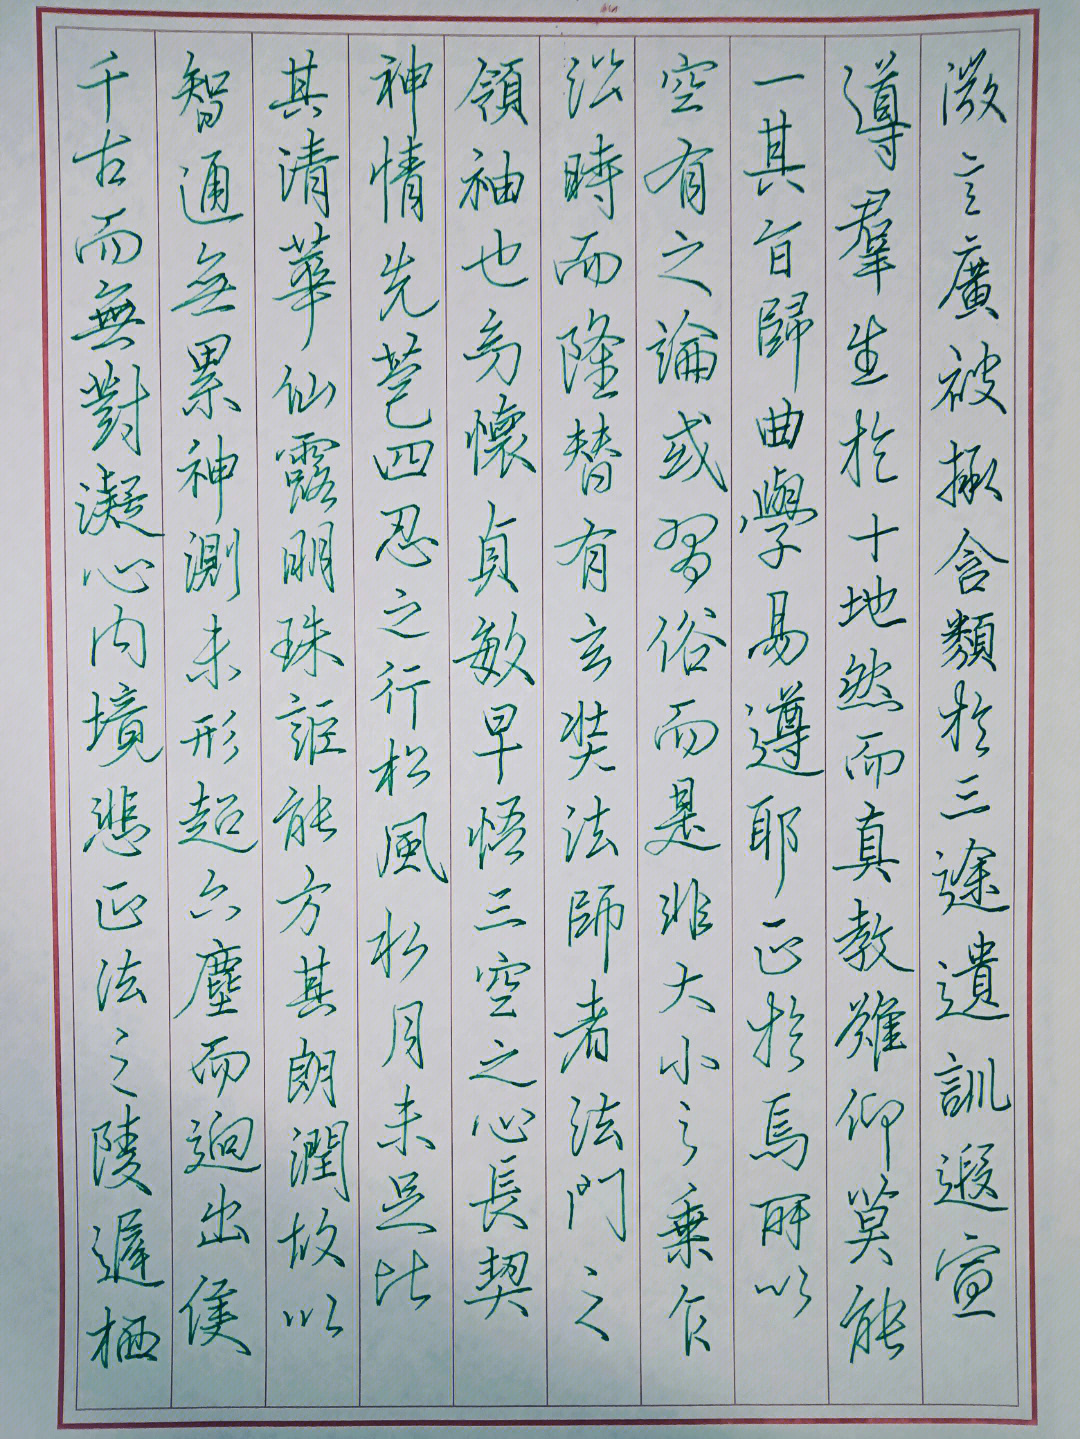 微言廣被拯含類於三途遺訓遐宣
導羣生於十地然而真教難仰莫能
一其旨歸曲學易遵耶正於焉所以
空有之論或習俗而是非大小之乘乍
沿時而隆替有玄奘法師者法門之
領袖也幼懷貞敏早悟三空之心長契
神情先苞四忍之行松風水月未足比
其清華仙露明珠詎能方其朗潤故以
智通無累神測未形超六塵而迥出隻
千古而無對凝心內境悲正法之陵遲栖